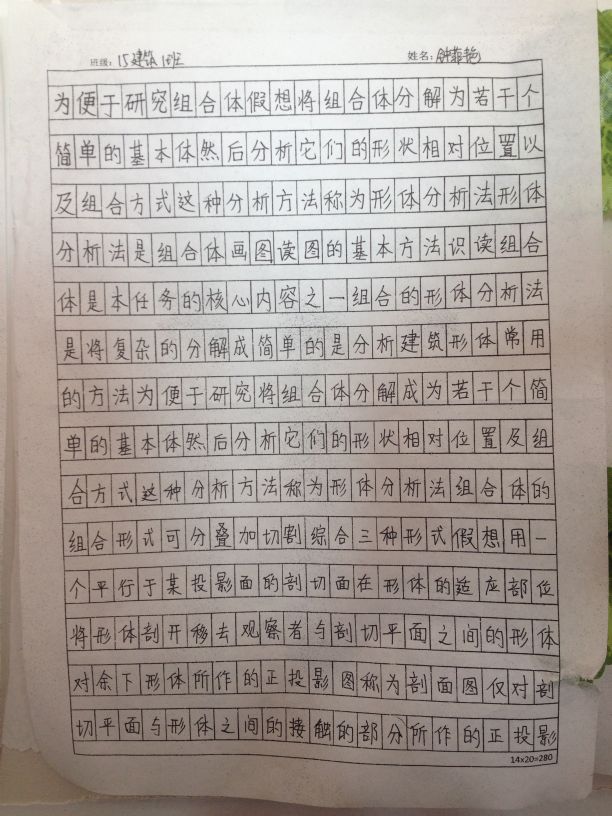 班级：15建筑1班 姓名：钟菲艳
为便于研究组合体假想将组合体分解为若干个
简单的基本体然后分析它们的形状相对位置以
及组合方式这种分析方法称为形体分析法形体
分析法是组合体画图读图的基本方法识读组合
体是本任务的核心内容之一组合的形体分析法
是将复杂的分解成简单的是分析建筑形体常用
的方法为便于研究将组合体分解成为若干个简
单的基本体然后分析它们的形状相对位置及组
合方式这种分析方法称为形体分析法组合体的
组合形式可分叠加切割综合三种形式假想用一
个平行于某投影面的剖切面在形体的适座部位
将形体剖开移去观察者与剖切平面之间的形体
对余下形体所作的正投影图称为剖面图仅对剖
切平面与形体之间的接触的部分所作的正投影
14x20=280